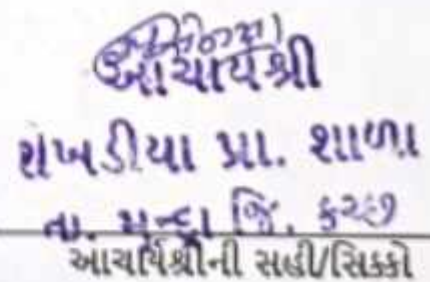 આચાર્યશ્રી
શેખડીયા પ્રા. શાળા
તા. મુન્દ્રા જિ. કચ્છ
આચાર્યશ્રીની સહી/સિક્કો